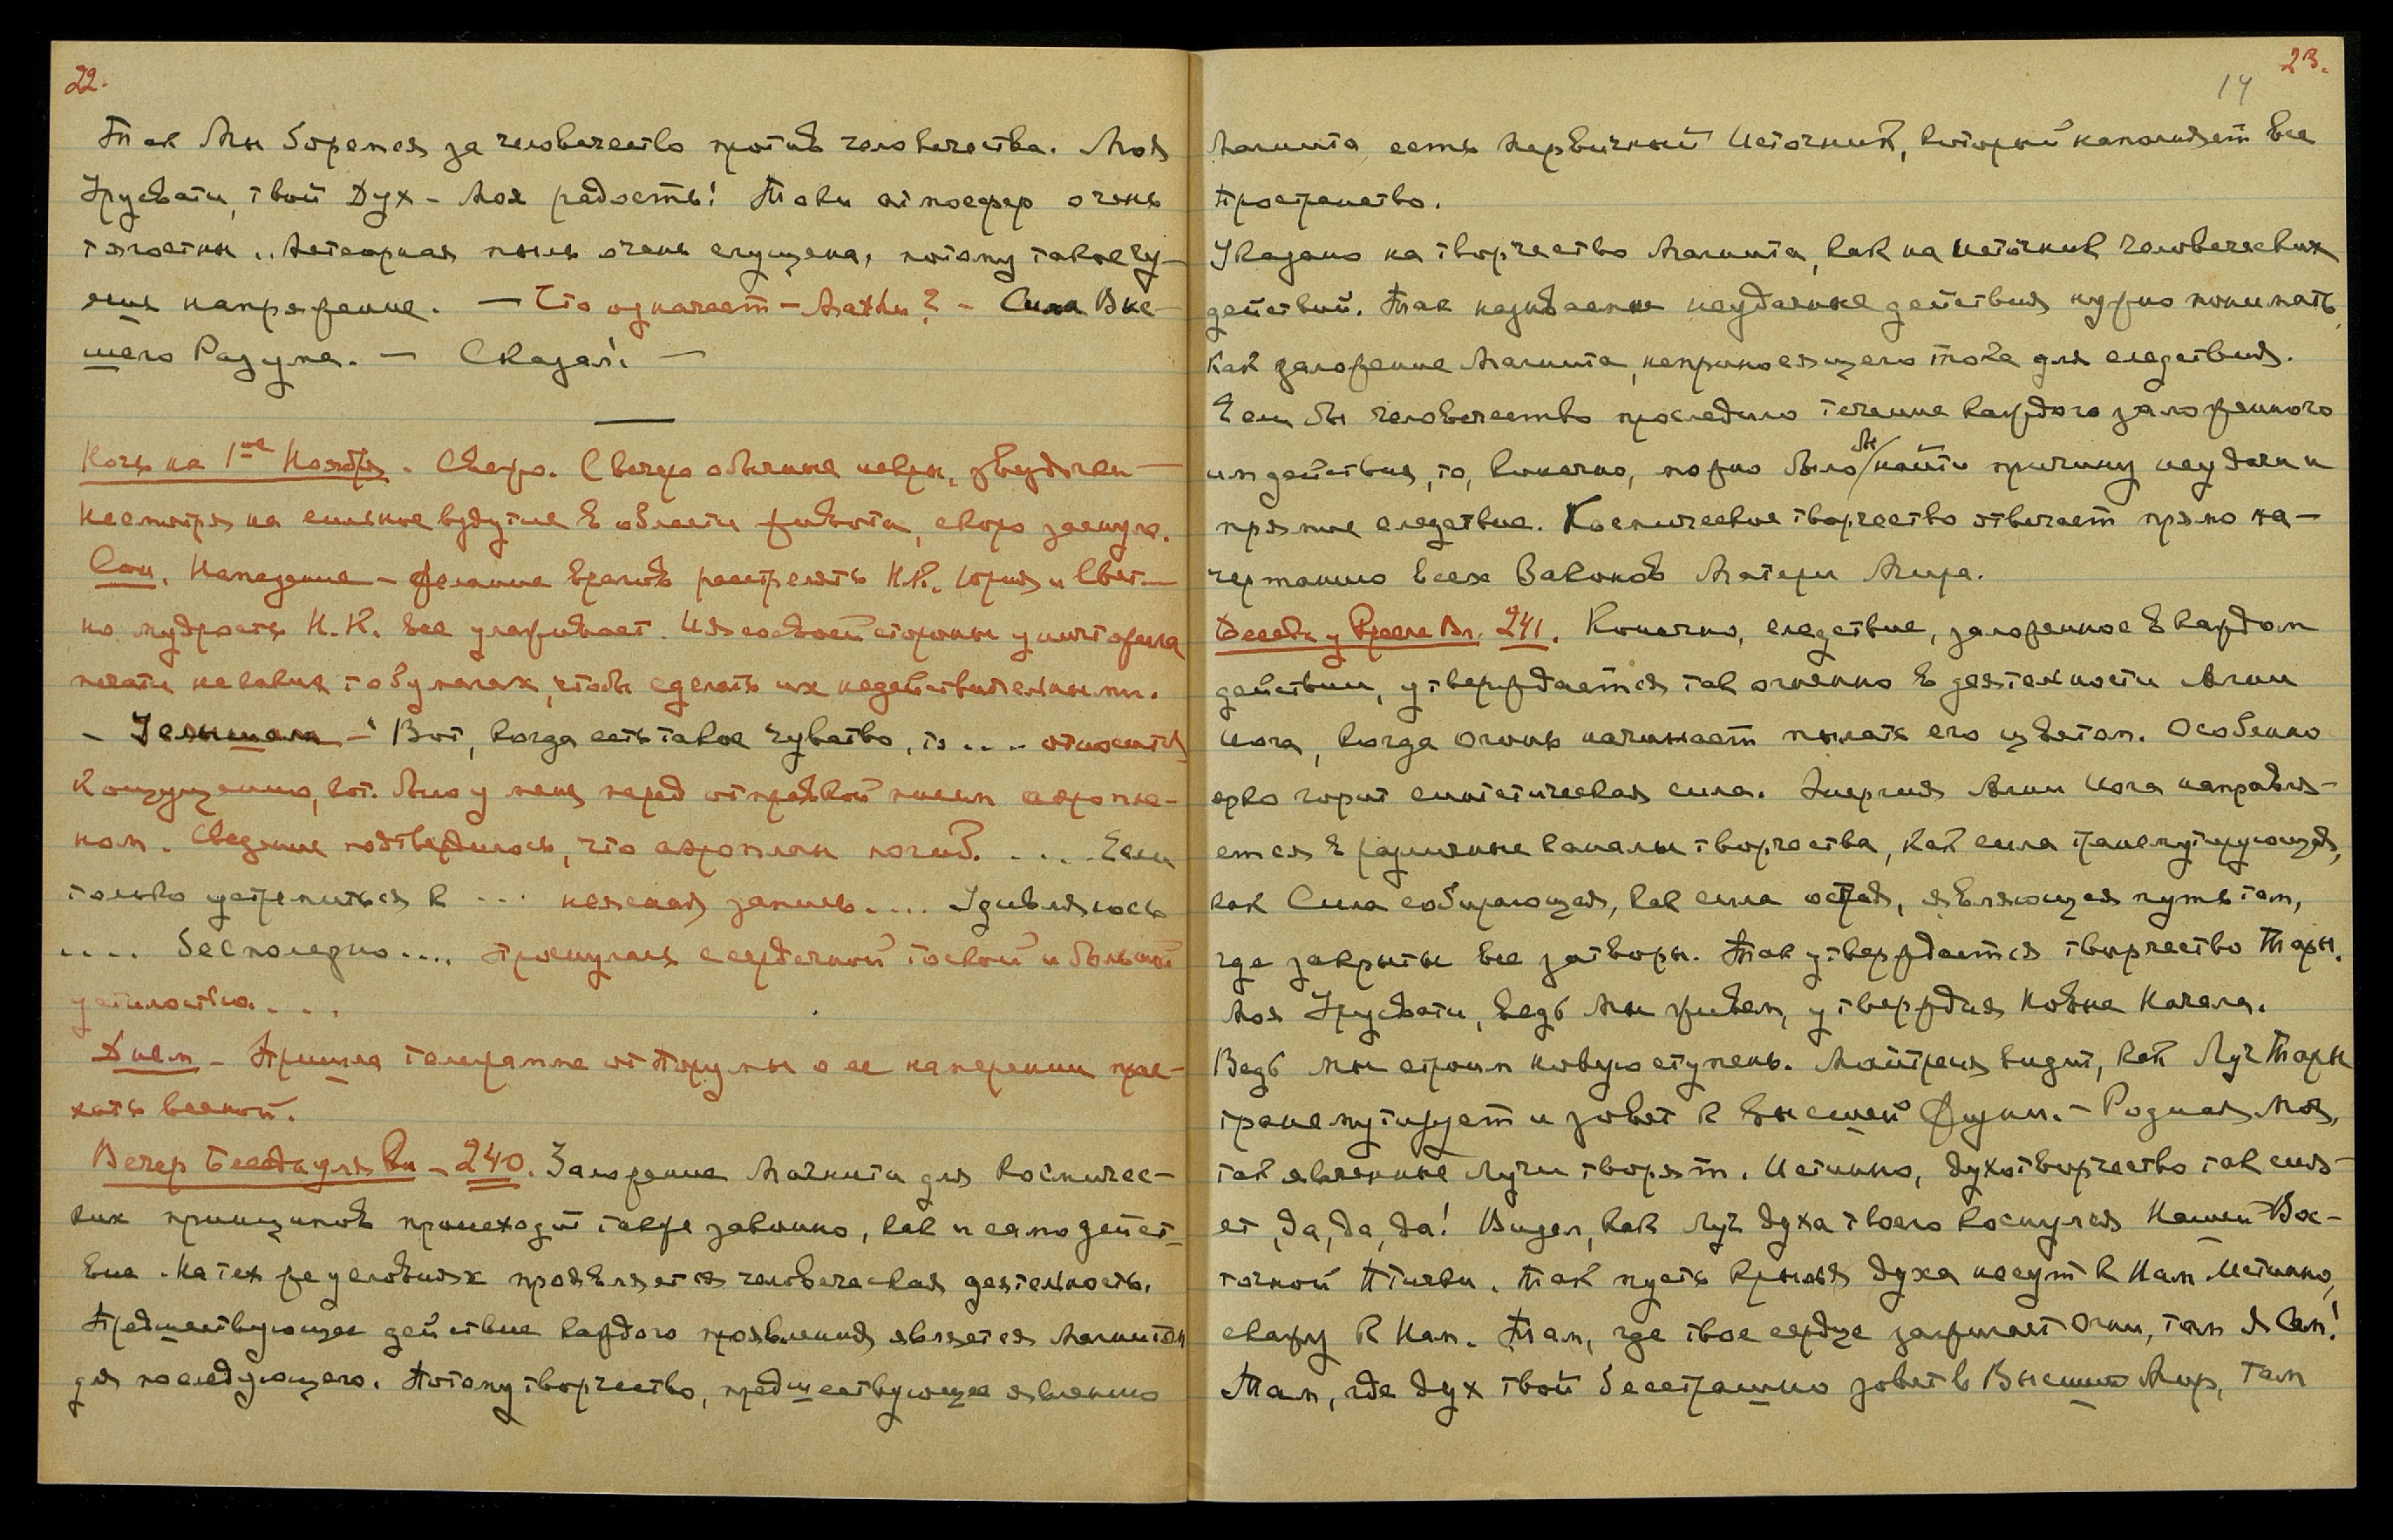 22.
Так Мы боремся за человечество против человечества. Моя
Урусвати, твой Дух – Моя радость! Токи атмосфер очень
тягостны.. Метеорная пыль очень сгущена, потому такое чу-
ешь напряжение. – Что означает – Махди? – Сила Выс-
шего Разума. – Сказал. –
Ночь на 1ое Ноября. Сыро. С вечера обычные искры, звездочки –
Несмотря на сильное вздутие в области живота, скоро заснула.
Сон. Нападение – желание врагов расстрелять Н.К. Юрия и Свет. –
но мудрость Н.К. все улаживает. Я со своей стороны уничтожила
печати на каких то бумагах, чтобы сделать их недействительными.
– Услышала – "Вот, когда есть такое чувство, то .... относится
к ощущению, кот. было у меня перед отправкой писем аэропла-
ном. Сведение подтвердилось, что аэроплан погиб. .... Если
только устремиться к ... неясная запись.... Удивляюсь
.... бесполезно.... Проснулась с сердечной тоской и большой
усталостью....
Днем – Пришла телеграмма от Порумы о ее намерении прие-
хать весной.
Вечер Беседа у Кр. Вл – 240. Заложение Магнита для космичес-
ких принципов происходит также законно, как и само дейст-
вие. На тех же условиях проявляется человеческая деятельность.
Предшествующее действие каждого проявления является Магнитом
для последующего. Потому творчество, предшествующее явлению
23.
14
Магнита есть первичный Источник, который наполняет все
Пространство.
Указано на творчество Магнита, как на источник человеческих
действий. Так называемые неудачные действия нужно понимать,
как заложение Магнита, неприносящего тока для следствия.
Если бы человечество проследило течение каждого заложенного
им действия, то, конечно, можно было бы найти причину неудачи и
прямые следствия. Космическое творчество отвечает прямо на-
чертанию всех Законов Матери Мира.
Беседа у Кресла Вл. 241. Конечно, следствие, заложенное в каждом
действии, утверждается так огненно в деятельности Агни
Йога, когда огонь начинает пылать его цветом. Особенно
ярко горит синтетическая сила. Энергия Агни Йога направля-
ется в различные каналы творчества, как сила трансмутирующая,
как Сила собирающая, как сила острая, являющая путь там,
где закрыты все затворы. Так утверждается творчество Тары.
Моя Урусвати, ведь Мы живем, утверждая Новые Начала.
Ведь мы строим новую ступень. Майтрейя видит, как Луч Тары
трансмутирует и зовет к высшей Жизни. – Родная Моя,
так явленные Лучи творят. Истинно, духотворчество так сия-
ет, да, да, да! Видел, как луч духа твоего коснулся Нашей Вос-
точной Птички. Так пусть крылья духа несут к Нам. Истинно,
скажу к Нам. Там, где твое сердце зажигает Огни, там Я Сам!
Там, где дух твой бесстрашно зовет в Высший Мир, там